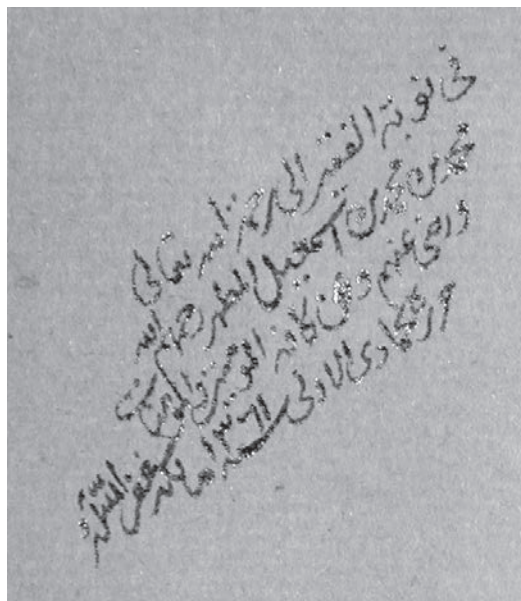 في نوبة الفقير الى رحمة الله تعالى
محمد بن محمد بن اسمعيل المطهر رحمهم الله
ورضى عنهم وعن كافة المومنين والمومنات
حرر جمادى الاولى سنة ١٣٦١